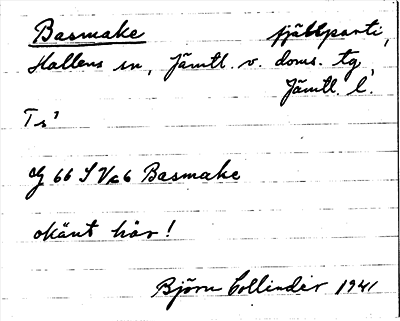 Basmake fjällparti,
Hallens sn, Jämtl. v. doms. tg
Jämtl. l.
Ts'
G 66 S Vc6 Basmake
okänt här!
Björn Collinder 1941